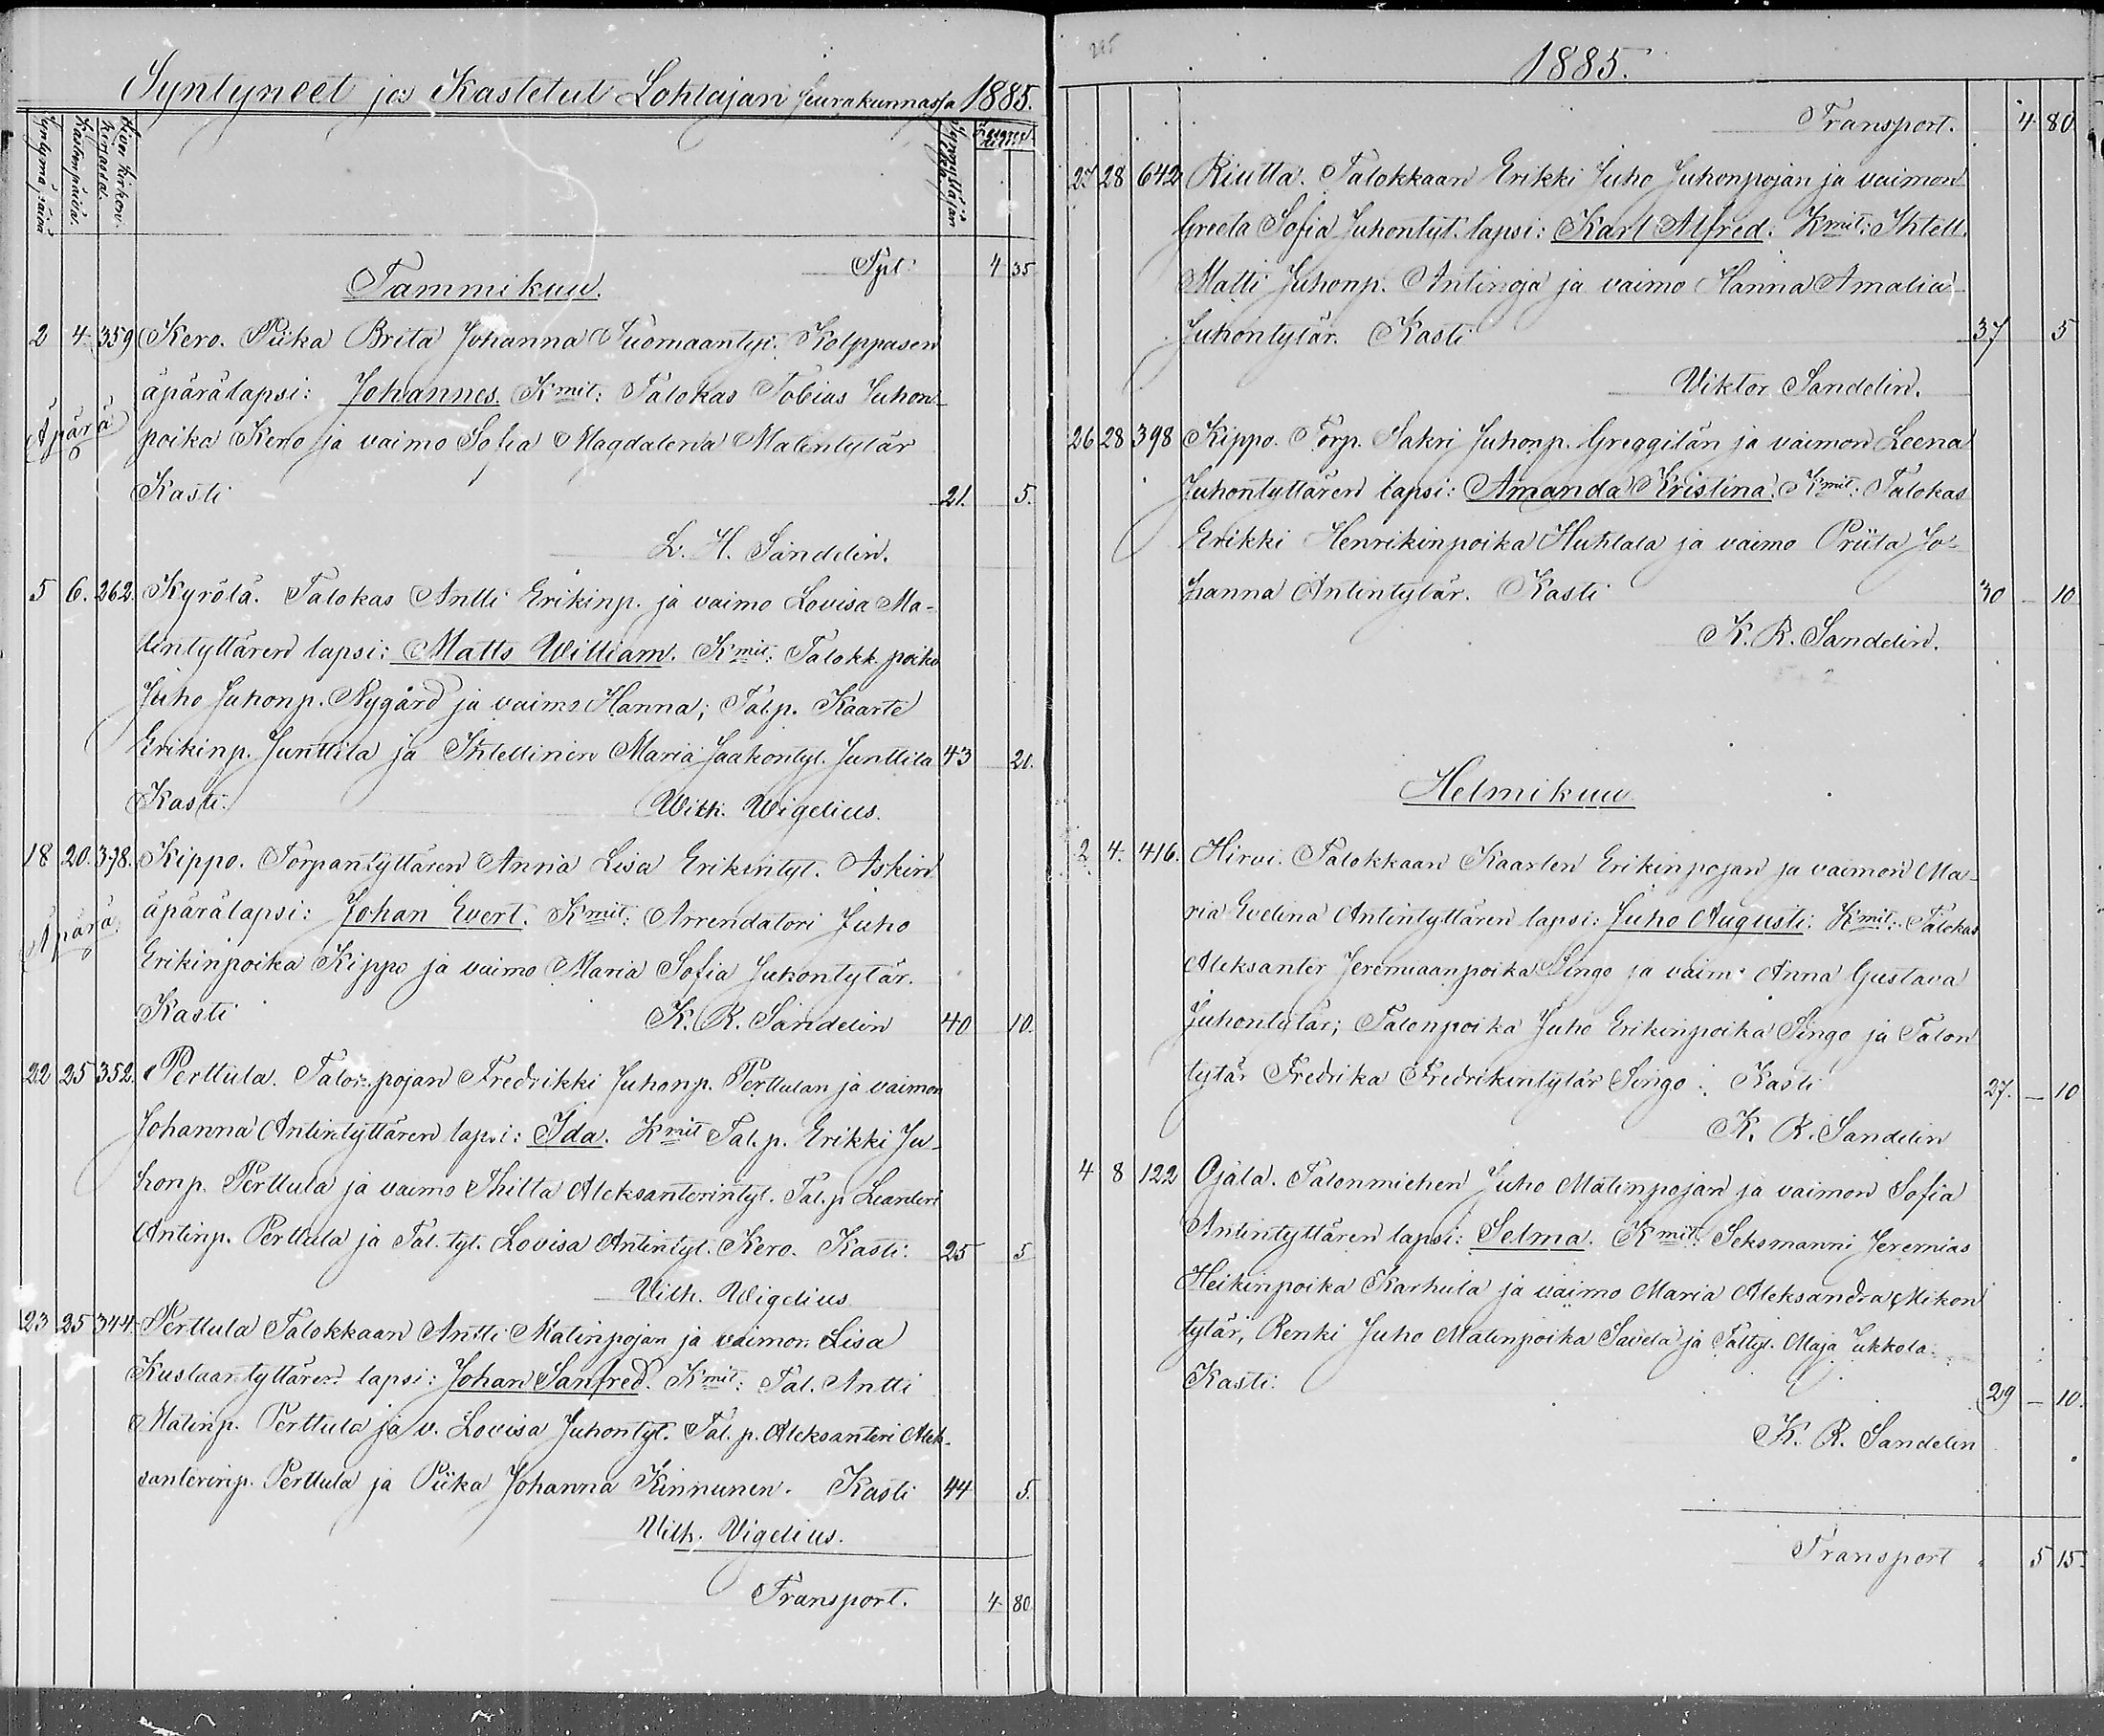 Syntyneet ja Kastetut Lohtajan seurakunnassa 1885.
Syntymäpäivä
Kastepäivä.
Sivu kirkon kirjassa.
Tpt. 4 35
Tammikuu.
2 4 359 Kero. Piika Brita Johanna Tuomaantyt. Kolppasen
äpärälapsi: Johannes. Kmit: Talokas Tobias Juhon-
Äpärä poika Kero ja vaimo Sofia Magdalena Matintytär
Kasti 21. 5.
L. H. Sandelin.
5 6. 262. Kyrölä. Talokas Antti Erikinp. ja vaimo Lovisa Ma-
tintyttären lapsi: Matts William. Kmit: Talokk. poika
Juho Juhonp. Nygård ja vaimo Hanna; Tal.p. Kaarle
Erikinp. Junttila ja Ihtellinen Maria Jaakontyt. Junttila 43 20.
Kasti. Wilh. Wigelius.
18 20. 378. Kippo. Torpantyttären Anna Lisa Erikintyt. Askin
äpärälapsi: Johan Evert. Kmit: Arrendatori Juho
Äpärä Erikinpoika Kippo ja vaimo Maria Sofia Juhontytär.
Kasti K. R. Sandelin 40 10.
22 25 352. Perttula. Talon pojan Fredrikki Juhonp. Perttulan ja vaimon
Johanna Antintyttären lapsi: Ida. Kmit Tal.p. Erikki Ju-
honp. Perttula ja vaimo Thilta Aleksanterintyt. Tal.p Leanteri
Antinp. Perttula ja Tal. tyt. Lovisa Antintyt. Kero. Kasti: 25 5
Vilh. Wigelius
23 25 344. Perttula Talokkaan Antti Matinpojan ja vaimon Lisa
Kustaantyttären lapsi: Johan Sanfred. Kmit: Tal. Antti
Matinp. Perttula ja v. Lovisa Juhontyt. Tal. p. Aleksanteri Alek-
santerinp. Perttula ja Piika Johanna Kinnunen. Kasti 44 5.
Vilh. Vigelius.
Transport. 4 80
1885.
Transport. 4 80
27 28 642 Riutta. Talokkaan Erikki Juho Juhonpojan ja vaimon
Greeta Sofia Juhontyt. lapsi: Karl Alfred. Kmit: Ihtell.
Matti Juhonp. Antinoja ja vaimo Hanna Amalia
Juhontytär. Kasti 37 5
Viktor Sandelin.
26 28 398 Kippo. Torp. Sakri Juhonp. Greggilän ja vaimon Leena
Juhontyttären lapsi: Amanda Kristina. Kmit: Talokas
Erikki Henrikinpoika Huhtala ja vaimo Priita Jo-
hanna Antintytär. Kasti 30 – 10
K. R. Sandelin.
Helmikuu
2 4. 416. Hirvi. Talokkaan Kaarlen Erikinpojan ja vaimon Ma-
ria Evelina Antintyttären lapsi: Juho Augusti: Kmit: Talokas
Aleksanter Jeremiaanpoika Singo ja vaimo Anna Gustava
Juhontytär; Talonpoika Juho Erikinpoika Singo ja Talon
tytär Fredrika Fredrikintytär Singo. Kasti 27. – 10
K. R. Sandelin
4 8 122 Ojala. Talonmiehen Juho Matinpojan ja vaimon Sofia
Antintyttären lapsi: Selma. Kmit: Seksmanni Jeremias
Heikinpoika Karhula ja vaimo Maria Aleksandra Mikon
tytär, Renki Juho Matinpoika Savela ja Taltyt. Maja Jukkola.
Kasti: 29 – 10.
K. R. Sandelin
Transport 5 15